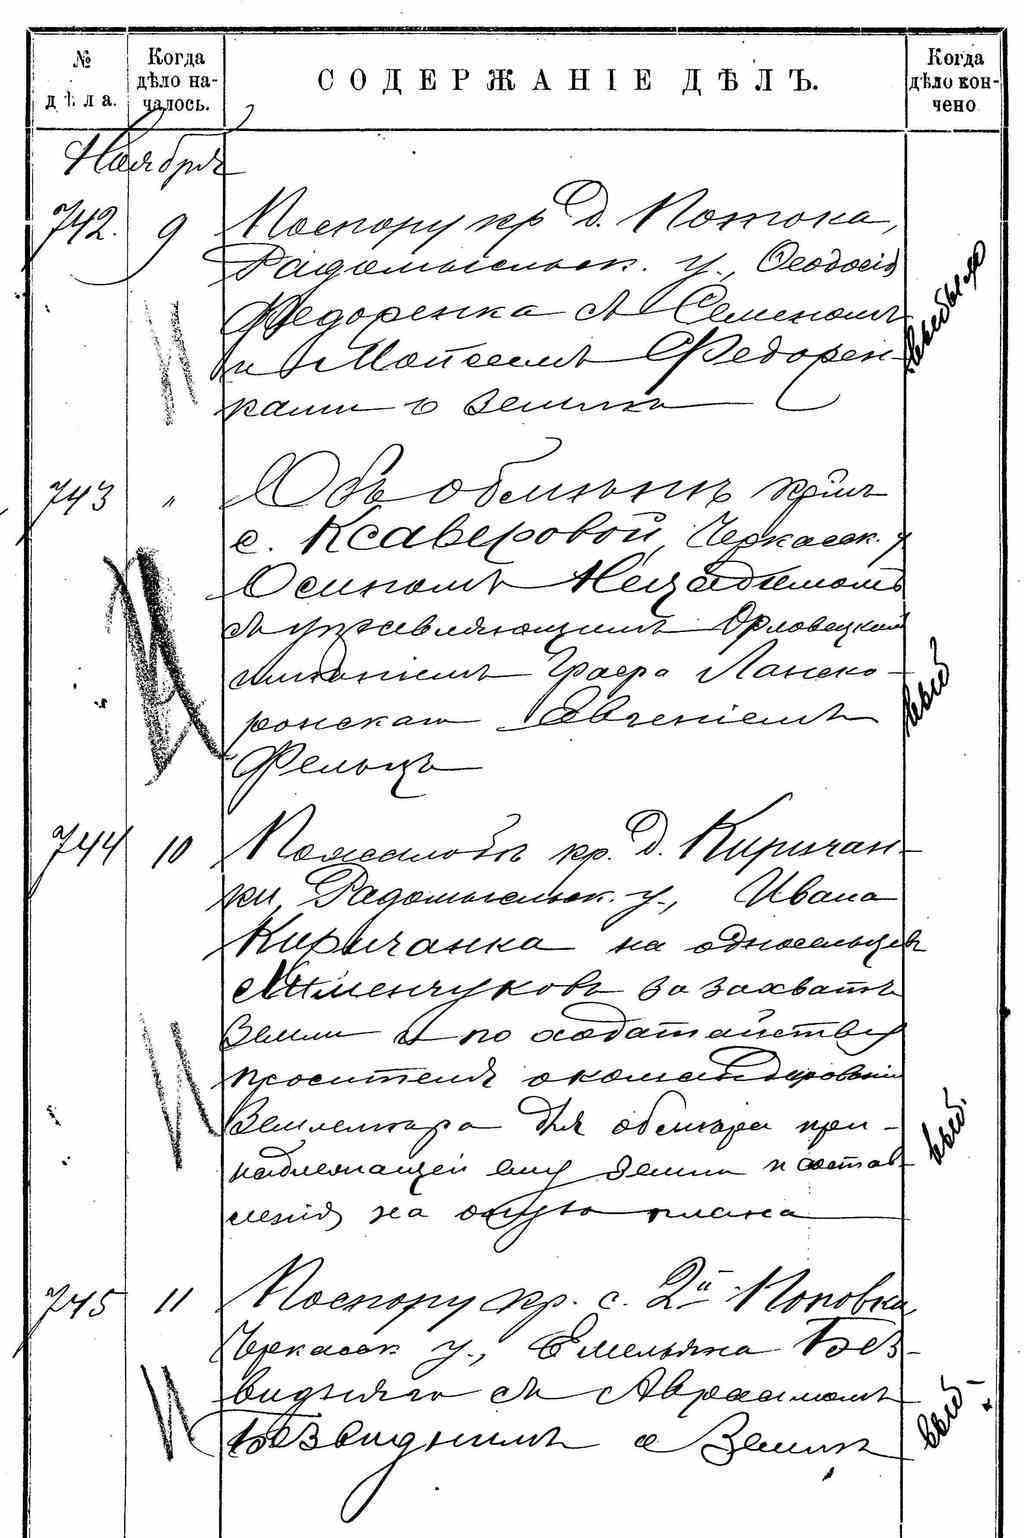 № дѣла.
Когда дѣло началось.
СОДЕРЖАНІЕ ДѢЛЪ.
Когда дѣло кончено
Ноября
742. 9 По спору кр. д. Потока,
Радомысльск. у., Ѳеодосія
Федоренка съ Семеномъ
и Моисеемъ Федорен-
ками о землѣ
выбыло
743 " Объ обмѣнѣ кр-мъ
с. Ксаверовой, Черкасск. у
Осипомъ
съ управляющимъ Орловецкимъ
имѣніемъ Графа Ланско-
ронскаго Евгеніемъ
Фельцъ
выб
744 10 По жалобѣ кр. д. Киричан-
ки, Радомысльск. у., Ивана
Киричанка на односельцевъ
за захватъ
земли и по ходатайству
просителя о командированіи
Землемѣра для обмѣра при-
надлежащей ему земли и состав-
ленія на оную плана
выб.
745 11 По спору кр. с. 2й Поповки,
Черкасск у., Емельяна Без-
виднаго съ Авраамомъ
Безвиднымъ о Землѣ
выб-